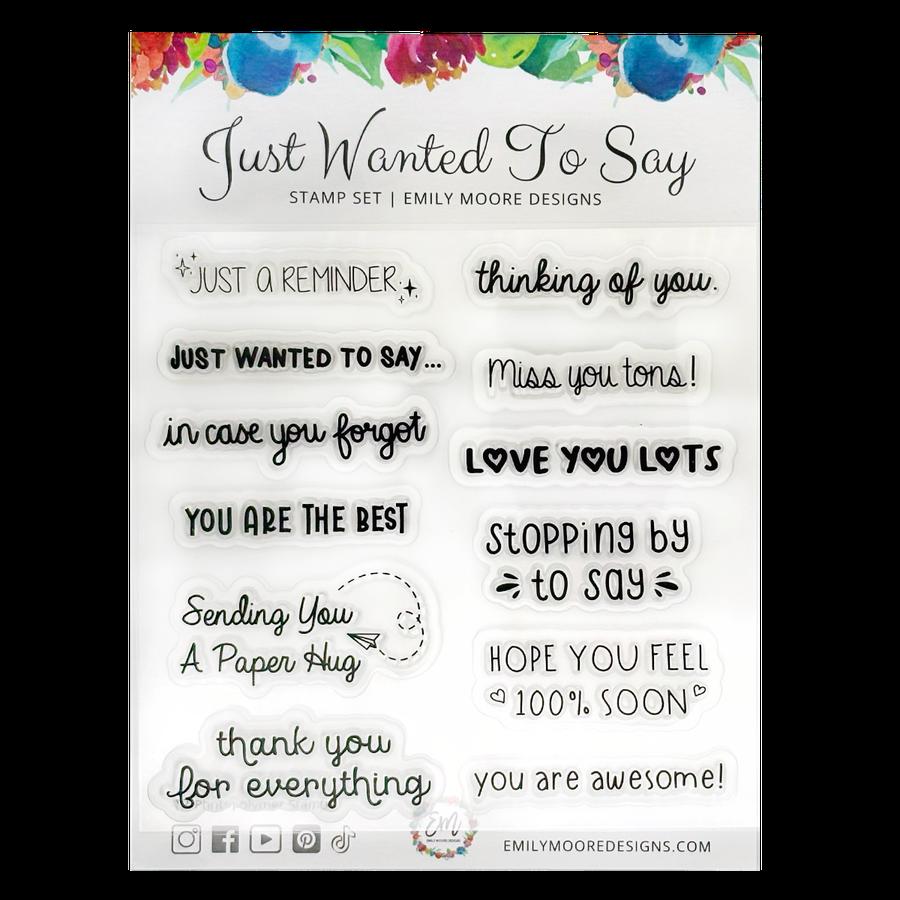 Just Wanted To Say
STAMP SET | EMILY MOORE DESIGNS
JUST A REMINDER
JUST WANTED TO SAY...
in case you forgot
YOU ARE THE BEST
Sending You
A Paper Hug
thank you
for everything
thinking of you.
Miss you tons!
LOVE YOU LOTS
Stopping by
to say
HOPE YOU FEEL
100% SOON
you are awesome!
Photopolymer Stamps
EM
EMILY MOORE DESIGNS
EMILYMOOREDESIGNS.COM